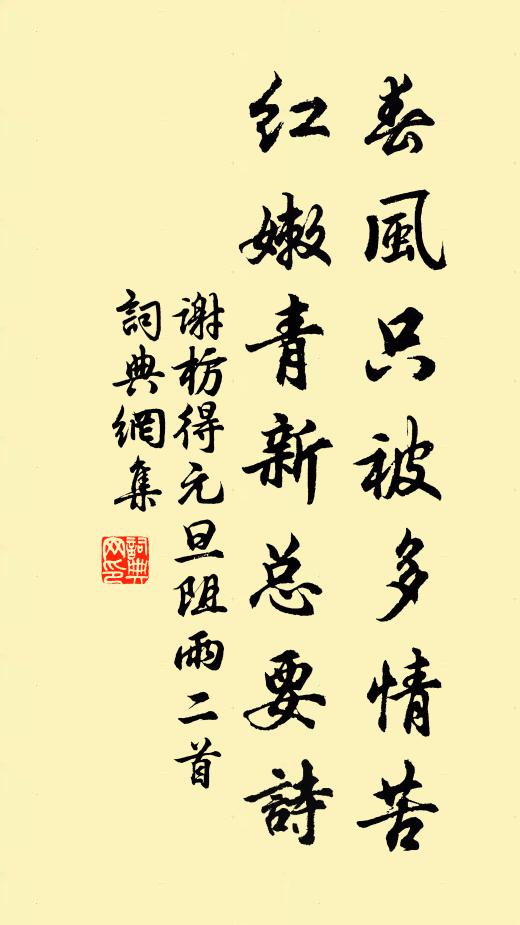 春風只被多情苦
紅嫩青新总要詩
謝枋得元旦阻雨二首
詞典網集
詞典
网印